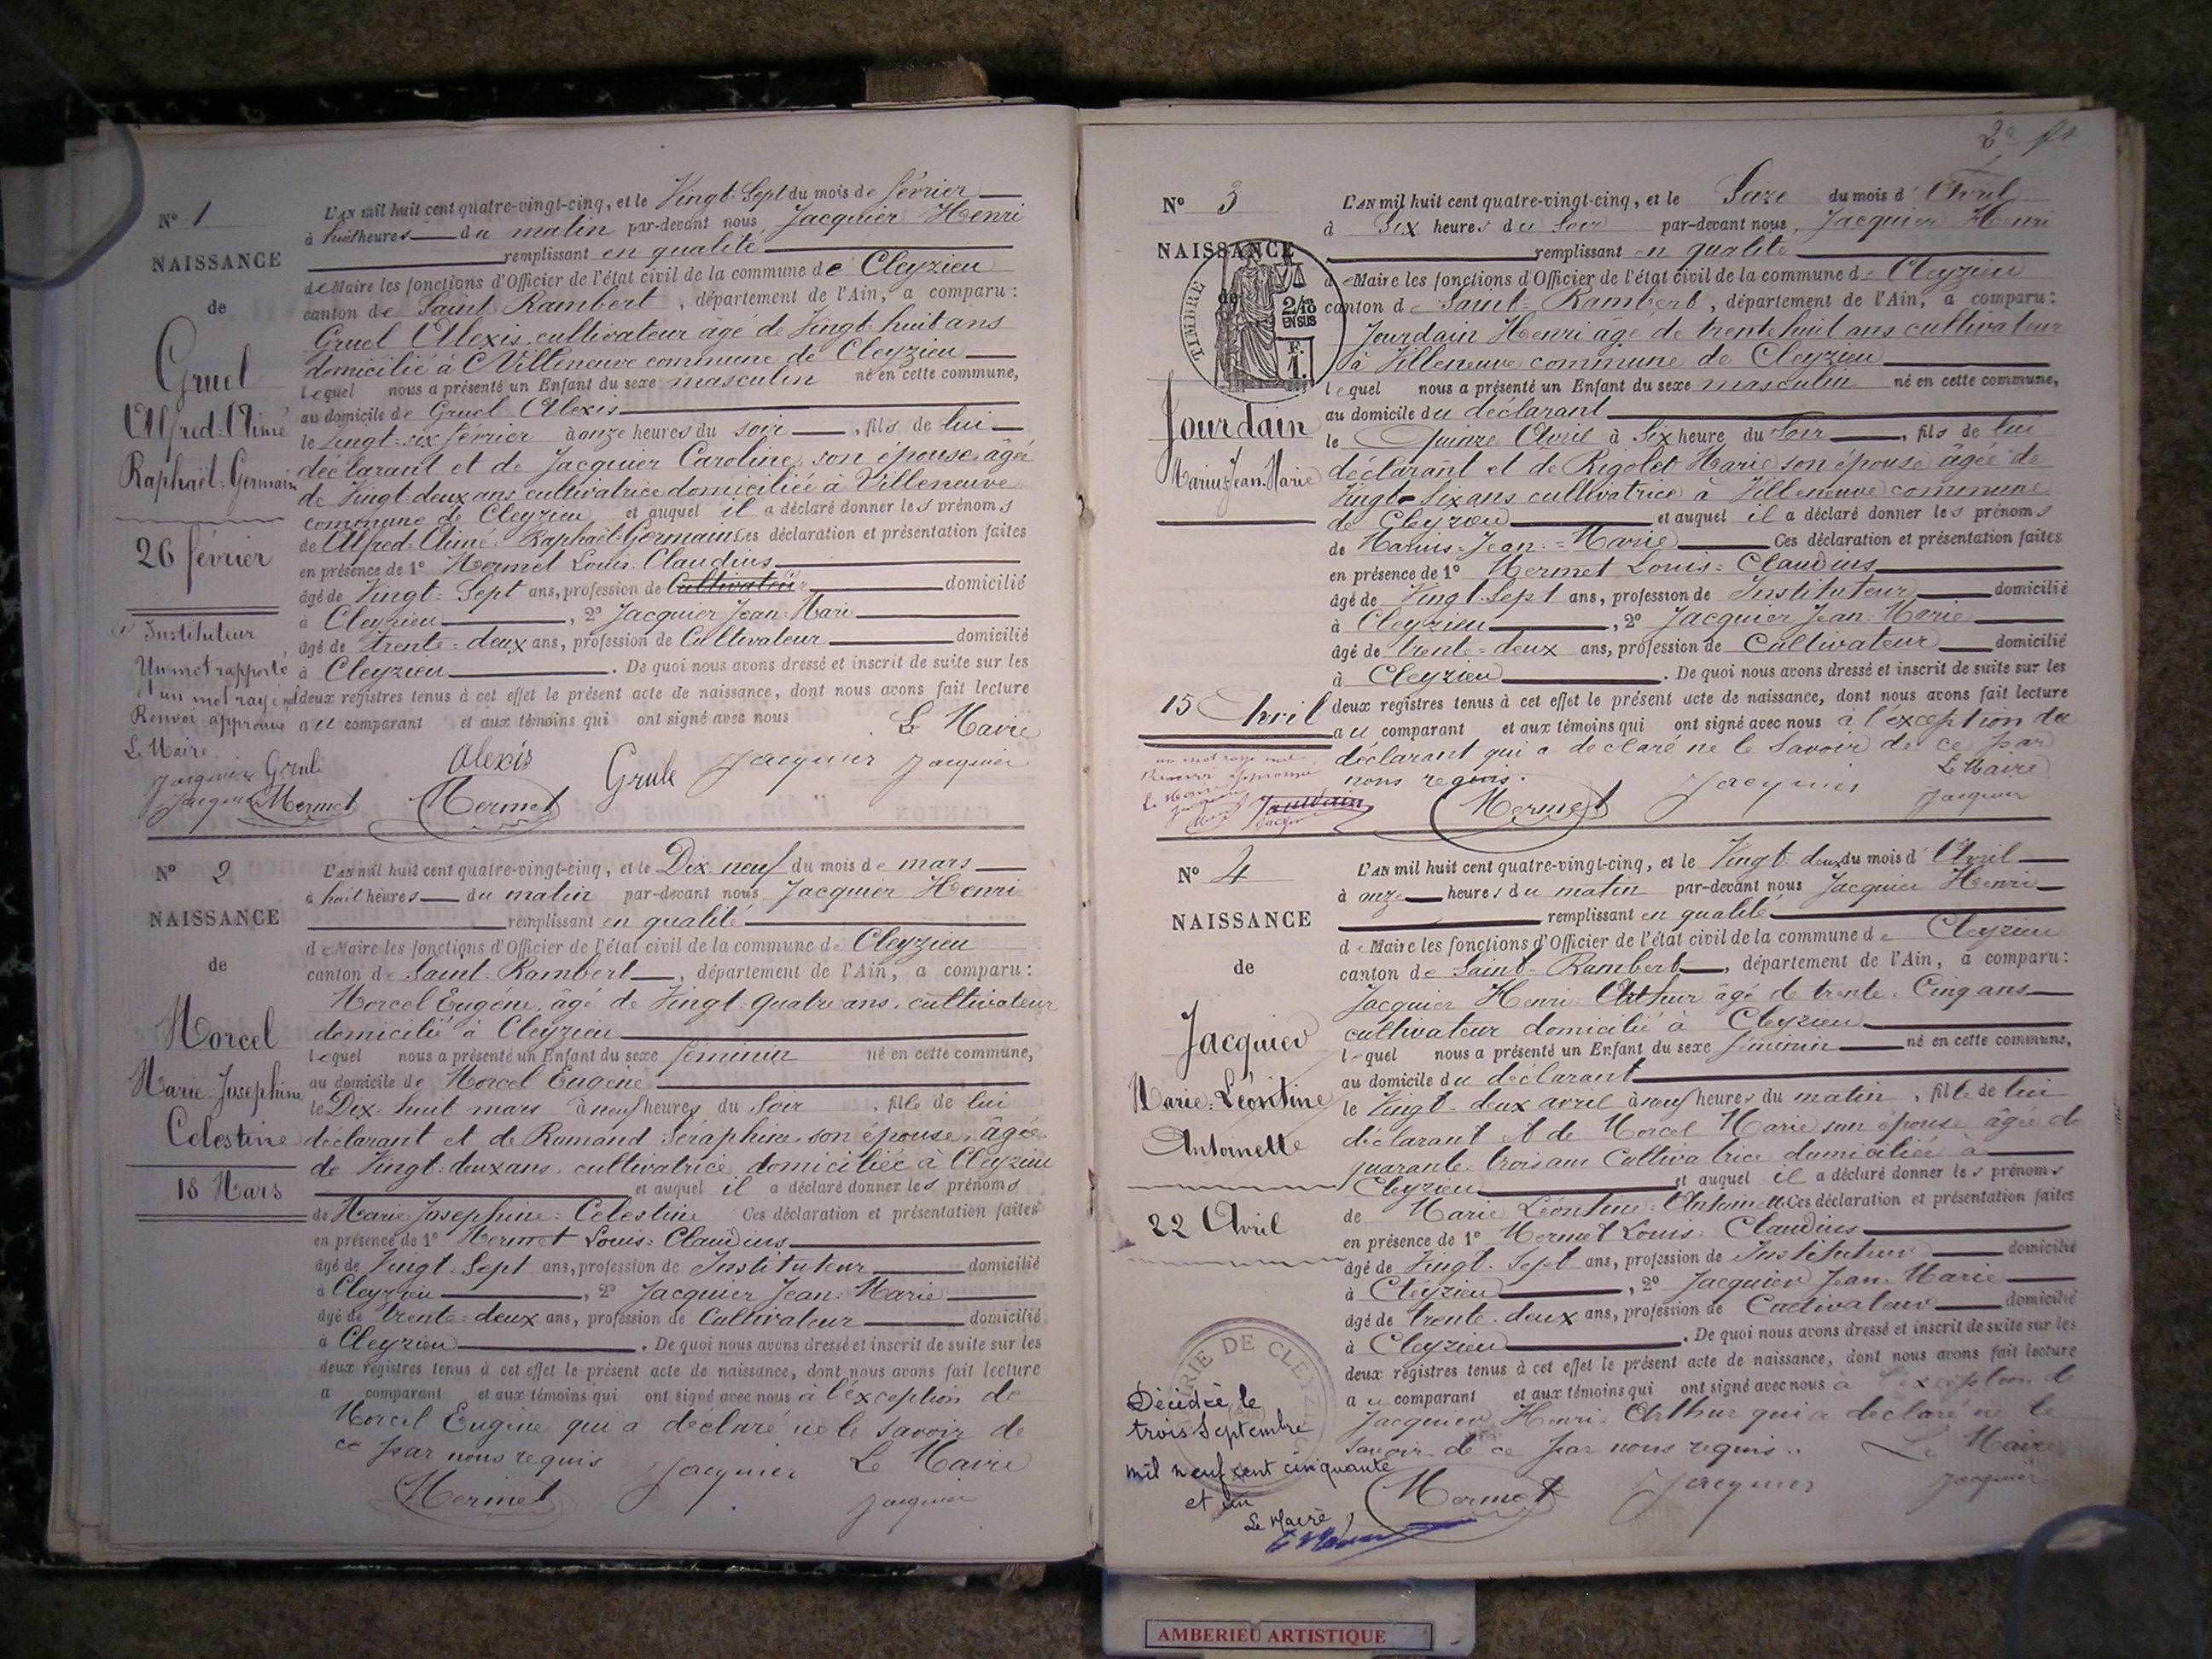 N° 1
NAISSANCE
de
Gruel
Alfred-Aimé
Raphaël-Germain
26 février
Instituteur
Un mot rapporté
et un mot rayé nul
Renvoi approuvé
Le Maire
Jacquier Grule
Jacquier Mermet
L'AN mil huit cent quatre-vingt-cinq, et le Vingt-Sept du mois de février
à huit heures du matin par-devant nous Jacquier Henri
remplissant en qualité
de Maire les fonctions d'Officier de l'état civil de la commune de Cleyzieu
canton de Saint-Rambert, département de l'Ain, a comparu :
Gruel Alexis cultivateur âgé de Vingt-huit ans
domicilié à Villeneuve commune de Cleyzieu
lequel nous a présenté un Enfant du sexe masculin né en cette commune,
au domicile de Gruel Alexis
le Vingt-six février à onze heures du soir, fils de lui
déclarant et de Jacquier Caroline son épouse âgée
de Vingt-deux ans cultivatrice domiciliée à Villeneuve
commune de Cleyzieu et auquel il a déclaré donner les prénoms
de Alfred-Aimé-Raphaël-Germain Ces déclaration et présentation faites
en présence de 1° Mermet Louis-Claudius
âgé de Vingt-Sept ans, profession de Cultivateur domicilié
à Cleyzieu, 2° Jacquier Jean-Marie
âgé de trente-deux ans, profession de Cultivateur domicilié
à Cleyzieu. De quoi nous avons dressé et inscrit de suite sur les
deux registres tenus à cet effet le présent acte de naissance, dont nous avons fait lecture
au comparant et aux témoins qui ont signé avec nous Le Maire
Alexis Grule Jacquier Jacquier
Mermet
N° 2
NAISSANCE
de
Morcel
Marie-Josephine
Celestine
18 Mars
L'AN mil huit cent quatre-vingt-cinq, et le Dix-neuf du mois de mars
à huit heures du matin par-devant nous Jacquier Henri
remplissant en qualité
de Maire les fonctions d'Officier de l'état civil de la commune de Cleyzieu
canton de Saint-Rambert, département de l'Ain, a comparu :
Morcel Eugéne, âgé de Vingt-quatre ans, cultivateur
domicilié à Cleyzieu
lequel nous a présenté un Enfant du sexe féminin né en cette commune,
au domicile de Morcel Eugène
le Dix-huit mars à neuf heures du soir, fille de lui
déclarant et de Romand Séraphine son épouse, âgée
de Vingt-deux ans cultivatrice domiciliée à Cleyzieu
et auquel il a déclaré donner les prénoms
de Marie Josephine-Celestine Ces déclaration et présentation faites
en présence de 1° Mermet Louis-Claudius
âgé de Vingt-Sept ans, profession de Instituteur domicilié
à Cleyzieu, 2° Jacquier Jean-Marie
âgé de trente-deux ans, profession de Cultivateur domicilié
à Cleyzieu. De quoi nous avons dressé et inscrit de suite sur les
deux registres tenus à cet effet le présent acte de naissance, dont nous avons fait lecture
a comparant et aux témoins qui ont signé avec nous à l'exception de
Morcel Eugène qui a déclaré ne le savoir de
ce par nous requis Jacquier Le Maire
Mermet Jacquier
2e ft
N° 3
NAISSANCE
de
TIMBRE
2/10
EN SUS
F.
1.
Jourdain
Marius Jean-Marie
15 Avril
Renvoi approuvé
Le Maire
L'AN mil huit cent quatre-vingt-cinq, et le Seize du mois d'Avril
à Six heures du Soir par-devant nous, Jacquier Henri
remplissant en qualité
de Maire les fonctions d'Officier de l'état civil de la commune de Cleyzieu
canton de Saint-Rambert, département de l'Ain, a comparu :
Jourdain Henri âgé de trente huit ans cultivateur
à Villeneuve commune de Cleyzieu
lequel nous a présenté un Enfant du sexe masculin né en cette commune,
au domicile du déclarant
le Quinze Avril à Six heure du Soir, fils de lui
déclarant et de Rigolet Marie son épouse âgée de
Vingt-Six ans cultivatrice à Villeneuve commune
de Cleyzieu et auquel il a déclaré donner les prénoms
de Marius-Jean-Marie Ces déclaration et présentation faites
en présence de 1° Mermet Louis-Claudius
âgé de Vingt-Sept ans, profession de Instituteur domicilié
à Cleyzieu, 2° Jacquier Jean-Marie
âgé de trente-deux ans, profession de Cultivateur domicilié
à Cleyzieu. De quoi nous avons dressé et inscrit de suite sur les
deux registres tenus à cet effet le présent acte de naissance, dont nous avons fait lecture
au comparant et aux témoins qui ont signé avec nous à l'exception du
déclarant qui a déclaré ne le Savoir de ce par
nous requis. Le Maire
Mermet Jacquier Jacquier
N° 4
NAISSANCE
de
Jacquier
Marie-Léontine
Antoinette
22 Avril
MAIRIE DE CLEYZIEU
Décédée le
trois Septembre
mil neuf cent cinquante
et un
Le Maire
L'AN mil huit cent quatre-vingt-cinq, et le Vingt-deux du mois d'Avril
à onze heures du matin par-devant nous Jacquier Henri
remplissant en qualité
de Maire les fonctions d'Officier de l'état civil de la commune de Cleyzieu
canton de Saint-Rambert, département de l'Ain, a comparu :
Jacquier Henri Arthur âgé de trente-Cinq ans
cultivateur domicilié à Cleyzieu
lequel nous a présenté un Enfant du sexe féminin né en cette commune,
au domicile du déclarant
le Vingt-deux avril à neuf heures du matin, fille de lui
déclarant et de Morcel Marie son épouse âgée de
quarante-trois ans Cultivatrice domiciliée à
Cleyzieu et auquel il a déclaré donner les prénoms
de Marie Léontine-Antoinette Ces déclaration et présentation faites
en présence de 1° Mermet Louis-Claudius
âgé de Vingt-Sept ans, profession de Instituteur domicilié
à Cleyzieu, 2° Jacquier Jean-Marie
âgé de trente-deux ans, profession de Cultivateur domicilié
à Cleyzieu. De quoi nous avons dressé et inscrit de suite sur les
deux registres tenus à cet effet le présent acte de naissance, dont nous avons fait lecture
au comparant et aux témoins qui ont signé avec nous à l'exception de
Jacquier Henri-Arthur qui a déclaré ne le
Savoir de ce par nous requis.. Le Maire
Mermet Jacquier Jacquier
AMBERIEU ARTISTIQUE